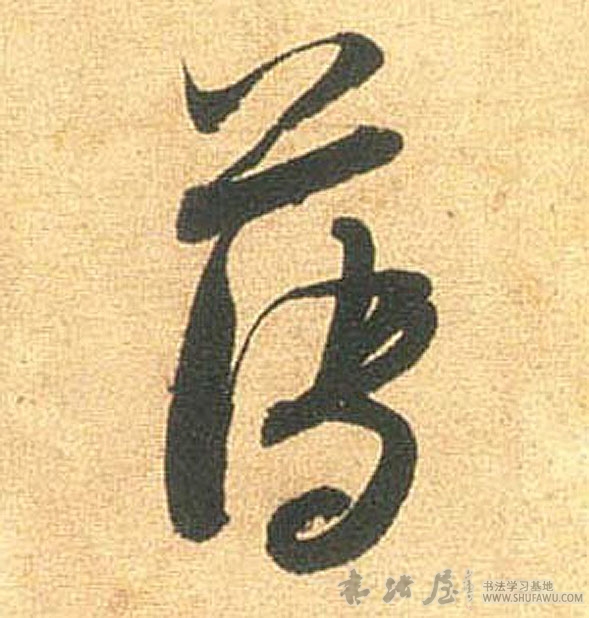 薄
书法屋
书法学习基地
WWW.SHUFAWU.COM